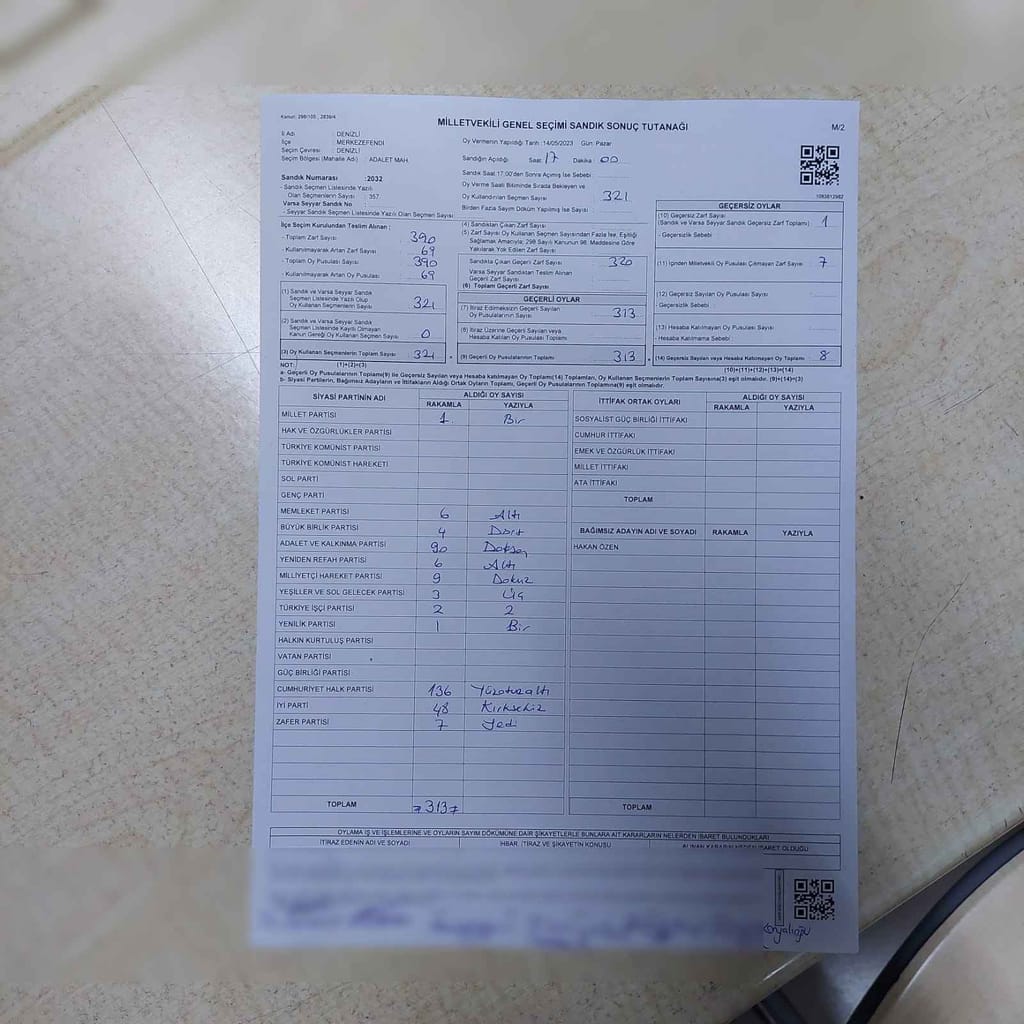 Kanun: 298/105 , 2839/4
MİLLETVEKİLİ GENEL SEÇİMİ SANDIK SONUÇ TUTANAĞI
M/2
İl Adı : DENİZLİ
İlçe : MERKEZEFENDİ
Seçim Çevresi : DENİZLİ
Seçim Bölgesi (Mahalle Adı) ADALET MAH.
Sandık Numarası :2032
- Sandık Seçmen Listesinde Yazılı
Olan Seçmenlerin Sayısı : 357
Varsa Seyyar Sandık No :
- Seyyar Sandık Seçmen Listesinde Yazılı Olan Seçmen Sayısı:
Oy Vermenin Yapıldığı Tarih :14/05/2023 Gün: Pazar
Sandığın Açıldığı Saat: 17 Dakika 00
Sandık Saat:17:00'den Sonra Açılmış İse Sebebi:
Oy Verme Saati Bitiminde Sırada Bekleyen ve
Oy Kullandırılan Seçmen Sayısı : 321
Birden Fazla Sayım Döküm Yapılmış İse Sayısı :
İlçe Seçim Kurulundan Teslim Alınan :
- Toplam Zarf Sayısı : 390
- Kullanılmayarak Artan Zarf Sayısı : 69
- Toplam Oy Pusulası Sayısı : 390
- Kullanılmayarak Artan Oy Pusulası : 69
(1) Sandık ve Varsa Seyyar Sandık
Seçmen Listesinde Yazılı Olup
Oy Kullanan Seçmenlerin Sayısı : 321
(2) Sandık ve Varsa Seyyar Sandık
Seçmen Listesinde Kayıtlı Olmayan
Kanun Gereği Oy Kullanan Seçmen Sayısı : 0
(3) Oy Kullanan Seçmenlerin Toplam Sayısı : 321
(1)+(2)=(3)
(4) Sandıktan Çıkan Zarf Sayısı :
(5) Zarf Sayısı Oy Kullanan Seçmen Sayısından Fazla İse, Eşitliği
Sağlamak Amacıyla; 298 Sayılı Kanunun 98. Maddesine Göre
Yakılarak Yok Edilen Zarf Sayısı :
Sandıkta Çıkan Geçerli Zarf Sayısı : 320
Varsa Seyyar Sandıktan Teslim Alınan
Geçerli Zarf Sayısı :
(6) Toplam Geçerli Zarf Sayısı :
GEÇERLİ OYLAR
(7) İtiraz Edilmeksizin Geçerli Sayılan
Oy Pusulalarının Sayısı : 313
(8) İtiraz Üzerine Geçerli Sayılan veya
Hesaba Katılan Oy Pusulası Toplamı :
(9) Geçerli Oy Pusulalarının Toplamı : 313
1083812982
GEÇERSİZ OYLAR
(10) Geçersiz Zarf Sayısı
(Sandık ve Varsa Seyyar Sandık Geçersiz Zarf Toplamı) : 1
- Geçersizlik Sebebi :
(11) İçinden Milletvekili Oy Pusulası Çıkmayan Zarf Sayısı : 7
(12) Geçersiz Sayılan Oy Pusulası Sayısı :
- Geçersizlik Sebebi :
(13) Hesaba Katılmayan Oy Pusulası Sayısı :
- Hesaba Katılmama Sebebi :
(14) Geçersiz Sayılan veya Hesaba Katılmayan Oy Toplamı : 8
(10)+(11)+(12)+(13)=(14)
NOT:
a- Geçerli Oy Pusulaları Toplamı(9) ile Geçersiz Sayılan veya Hesaba katılmayan Oy Toplamı(14) Toplamları, Oy Kullanan Seçmenlerin Toplam Sayısına(3) eşit olmalıdır. (9)+(14)=(3)
b- Siyasi Partilerin, Bağımsız Adayların ve İttifakların Aldığı Ortak Oyların Toplamı, Geçerli Oy Pusulalarının Toplamına(9) eşit olmalıdır.
SİYASİ PARTİNİN ADI ALDIĞI OY SAYISI
RAKAMLA YAZIYLA
MİLLET PARTİSİ 1 Bir
HAK VE ÖZGÜRLÜKLER PARTİSİ
TÜRKİYE KOMÜNİST PARTİSİ
TÜRKİYE KOMÜNİST HAREKETİ
SOL PARTİ
GENÇ PARTİ
MEMLEKET PARTİSİ 6 Altı
BÜYÜK BİRLİK PARTİSİ 4 Dört
ADALET VE KALKINMA PARTİSİ 90 Doksan
YENİDEN REFAH PARTİSİ 6 Altı
MİLLİYETÇİ HAREKET PARTİSİ 9 Dokuz
YEŞİLLER VE SOL GELECEK PARTİSİ 3 Üç
TÜRKİYE İŞÇİ PARTİSİ 2 2
YENİLİK PARTİSİ 1 Bir
HALKIN KURTULUŞ PARTİSİ
VATAN PARTİSİ
GÜÇ BİRLİĞİ PARTİSİ
CUMHURİYET HALK PARTİSİ 136 Yüzotuzaltı
İYİ PARTİ 48 Kırksekiz
ZAFER PARTİSİ 7 Yedi
TOPLAM 313
İTTİFAK ORTAK OYLARI ALDIĞI OY SAYISI
RAKAMLA YAZIYLA
SOSYALİST GÜÇ BİRLİĞİ İTTİFAKI
CUMHUR İTTİFAKI
EMEK VE ÖZGÜRLÜK İTTİFAKI
MİLLET İTTİFAKI
ATA İTTİFAKI
TOPLAM
BAĞIMSIZ ADAYIN ADI VE SOYADI RAKAMLA YAZIYLA
HAKAN ÖZEN
TOPLAM
OYLAMA İŞ VE İŞLEMLERİNE VE OYLARIN SAYIM DÖKÜMÜNE DAİR ŞİKAYETLERLE BUNLARA AİT KARARLARIN NELERDEN İBARET BULUNDUKLARI
İTİRAZ EDENİN ADI VE SOYADI İHBAR, İTİRAZ VE ŞİKAYETİN KONUSU